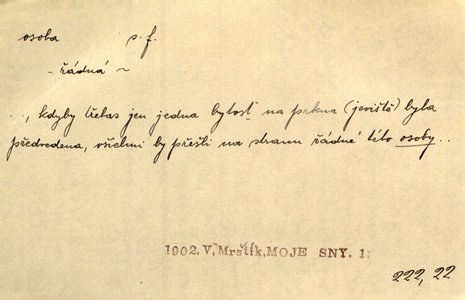 osoba s. f.
- řádná ~
.., kdyby třebas jen jedna bytost na prkna (jeviště) byla
předvedena, všichni by přešli na stranu řádné této osoby...
1902, V. Mrštík, MOJE SNY. 1:
222, 22